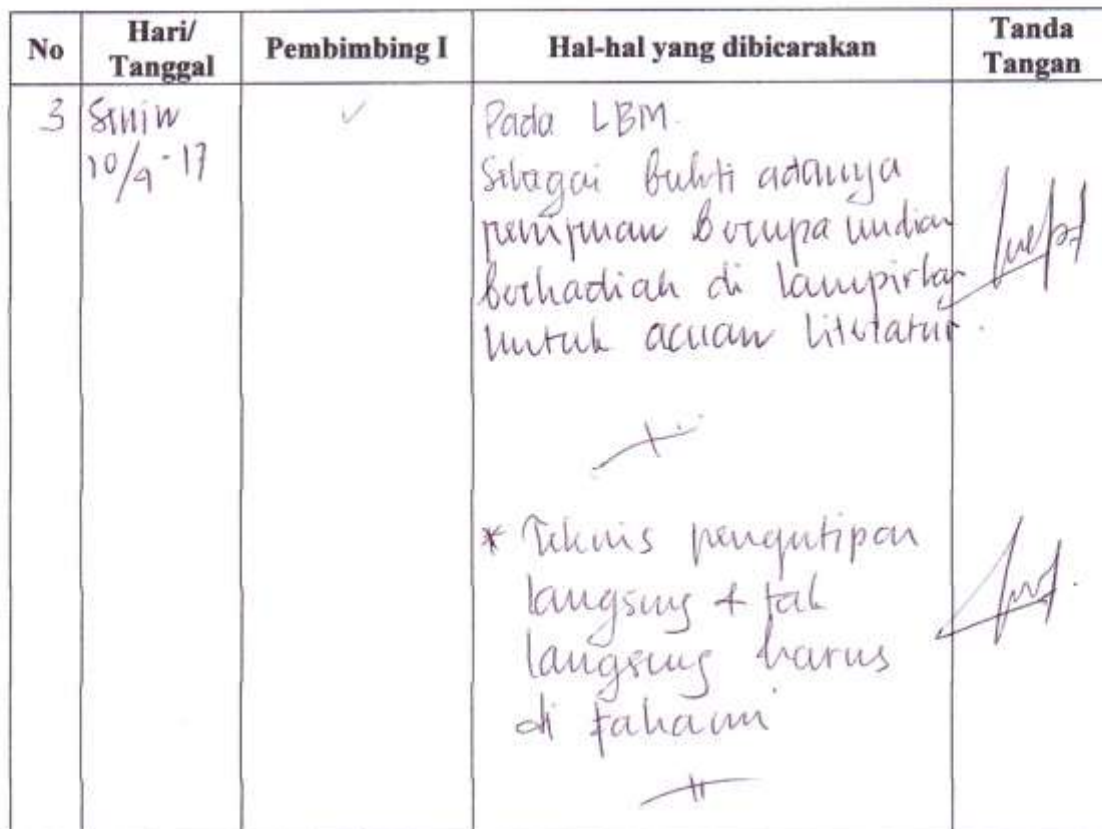 No
Hari/
Tanggal
Pembimbing I
Hal-hal yang dibicarakan
Tanda
Tangan
3
Senin
10/4-17
✓
Pada LBM.
Sebagai bukti adanya
penipuan berupa undian
berhadiah di lampirkan
untuk acuan literatur.
* Teknis pengutipan
langsung + tak
langsung harus
di fahami